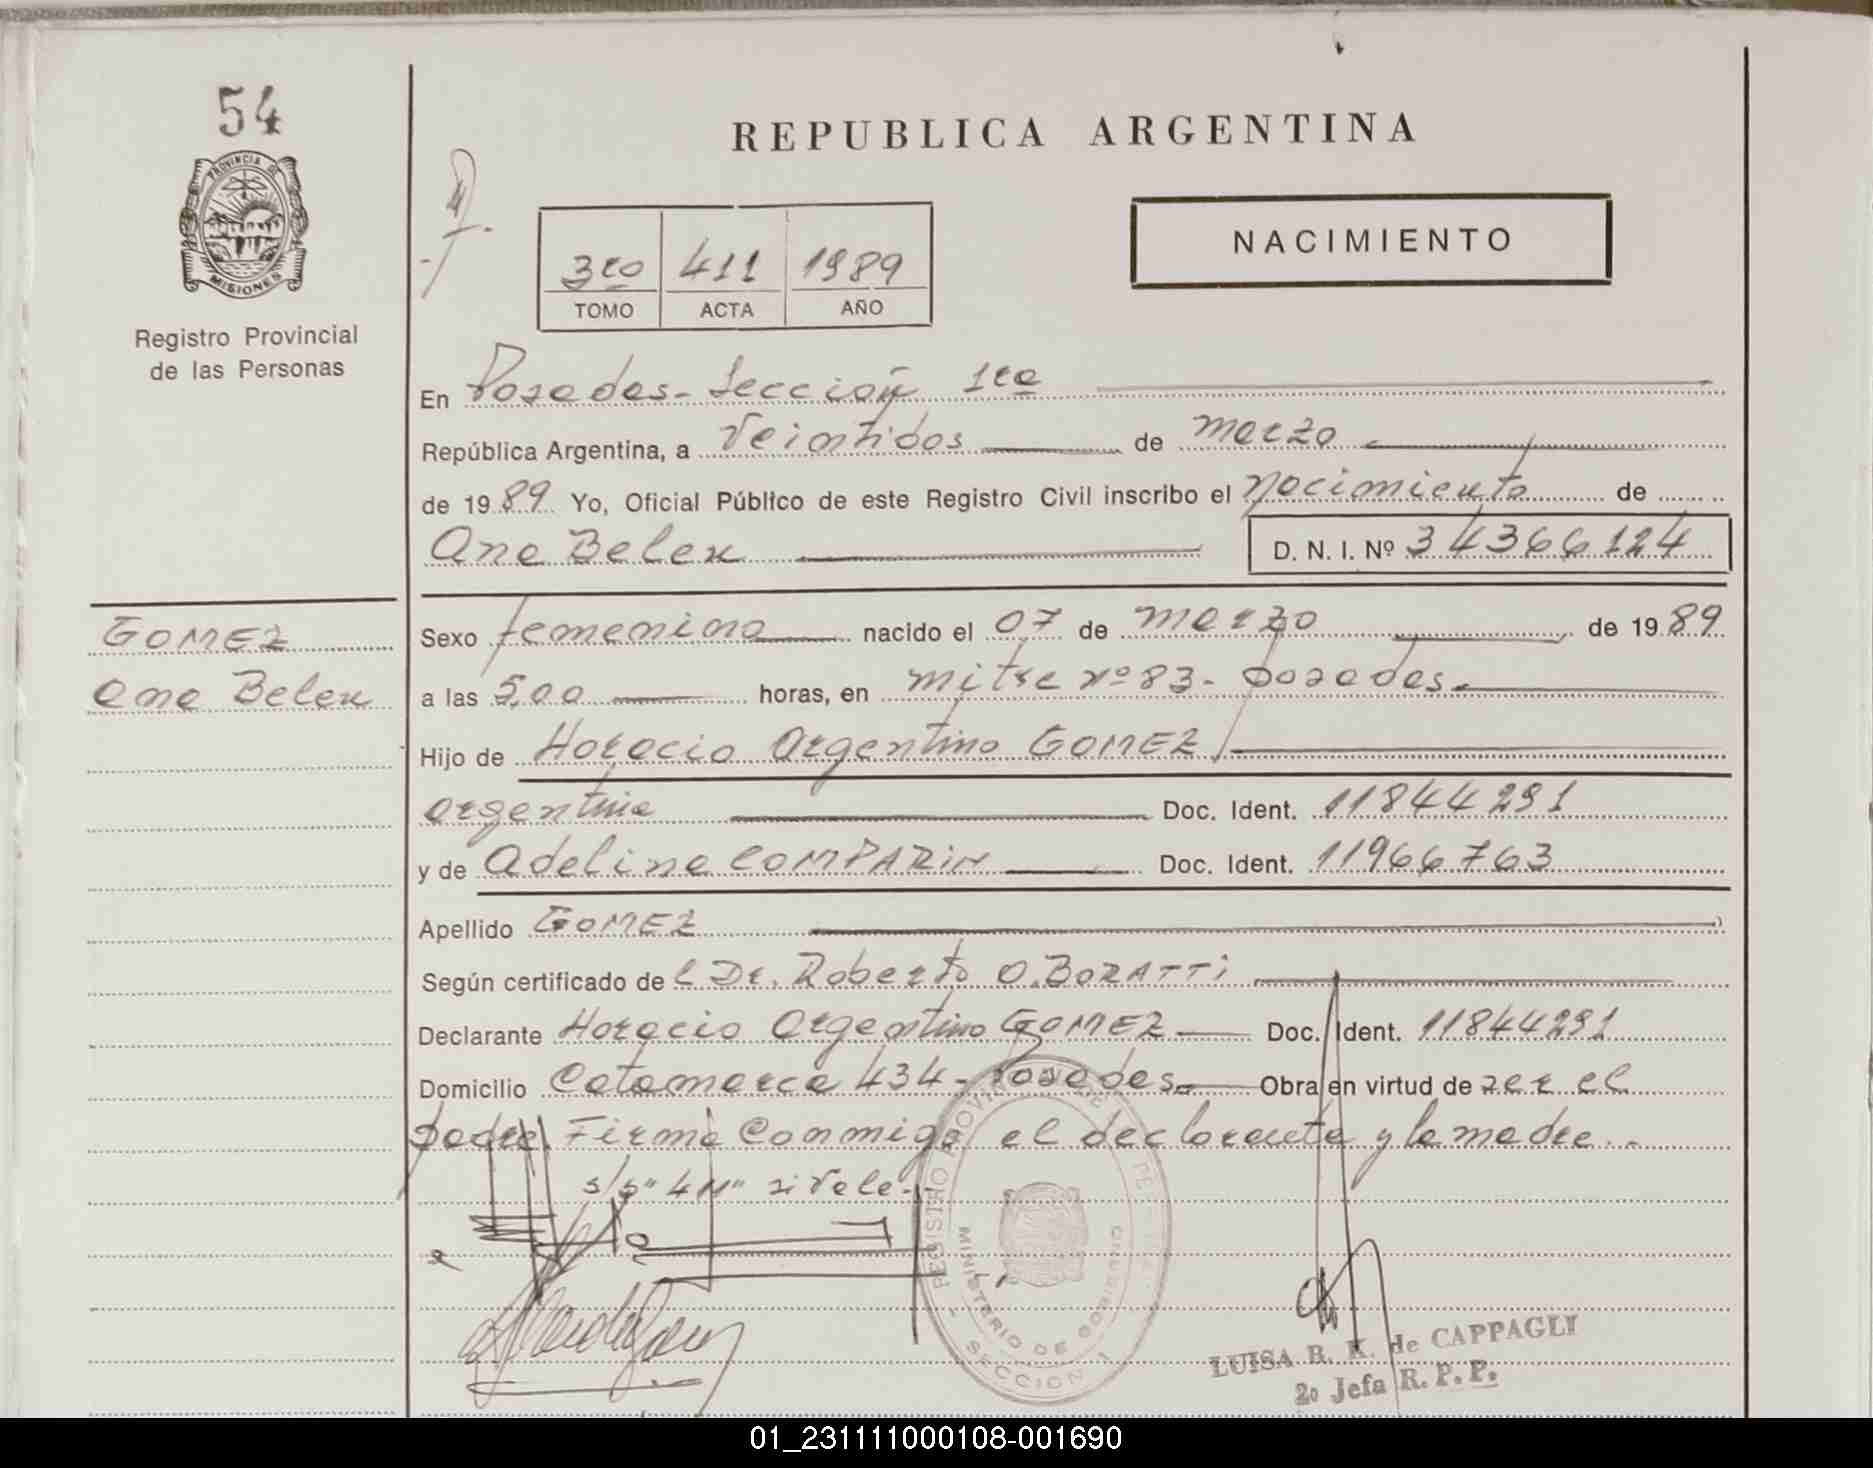 54
PROVINCIA DE
MISIONES
Registro Provincial
de las Personas
REPUBLICA ARGENTINA
NACIMIENTO
3ro 411 1989
TOMO ACTA AÑO
En Posadas - Sección 1ra
República Argentina, a Veintidos de marzo
de 1989 Yo, Oficial Público de este Registro Civil inscribo el nacimiento de
Ana Belen D. N. I. Nº 34366124
GOMEZ
Ana Belen
Sexo femenino nacido el 07 de marzo de 1989
a las 5,00 horas, en mitre nº 83 - posadas.
Hijo de Horacio Argentino GOMEZ
argentina Doc. Ident. 11844291
y de Adelina COMPARIN Doc. Ident. 11966763
Apellido GOMEZ
Según certificado del Dr. Roberto O. BORATTI
Declarante Horacio Argentino GOMEZ Doc. Ident. 11844291
Domicilio Catamarca 434 - Posadas. Obra en virtud de ser el
padre. Firma Conmigo el declarante y la madre. -
s/p "411" si Vale. -
REGISTRO PROVINCIAL DE
MINISTERIO DE GOBIERNO
- SECCION 1 -
LUISA R. K. de CAPPAGLI
2o Jefa R. P. P.
01_231111000108-001690